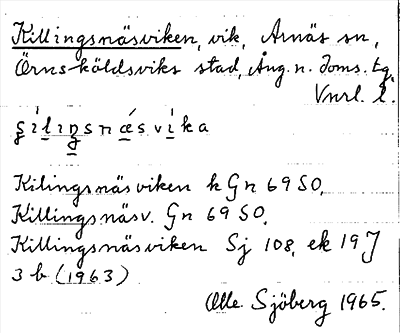 Killingsnäsviken, vik, Arnäs sn,
Örnsköldsviks stad, Ång. n. doms. tg.
Vnrl. l.
s̨ í l ı ŋ s n ǽ s v ì k a
Kilingsnäsviken h Gn 69 SO,
Killingsnäsv. Gn 69 SO,
Killingsnäsviken Sj 108, ek 19 J
3 b (1963)
Olle Sjöberg 1965.